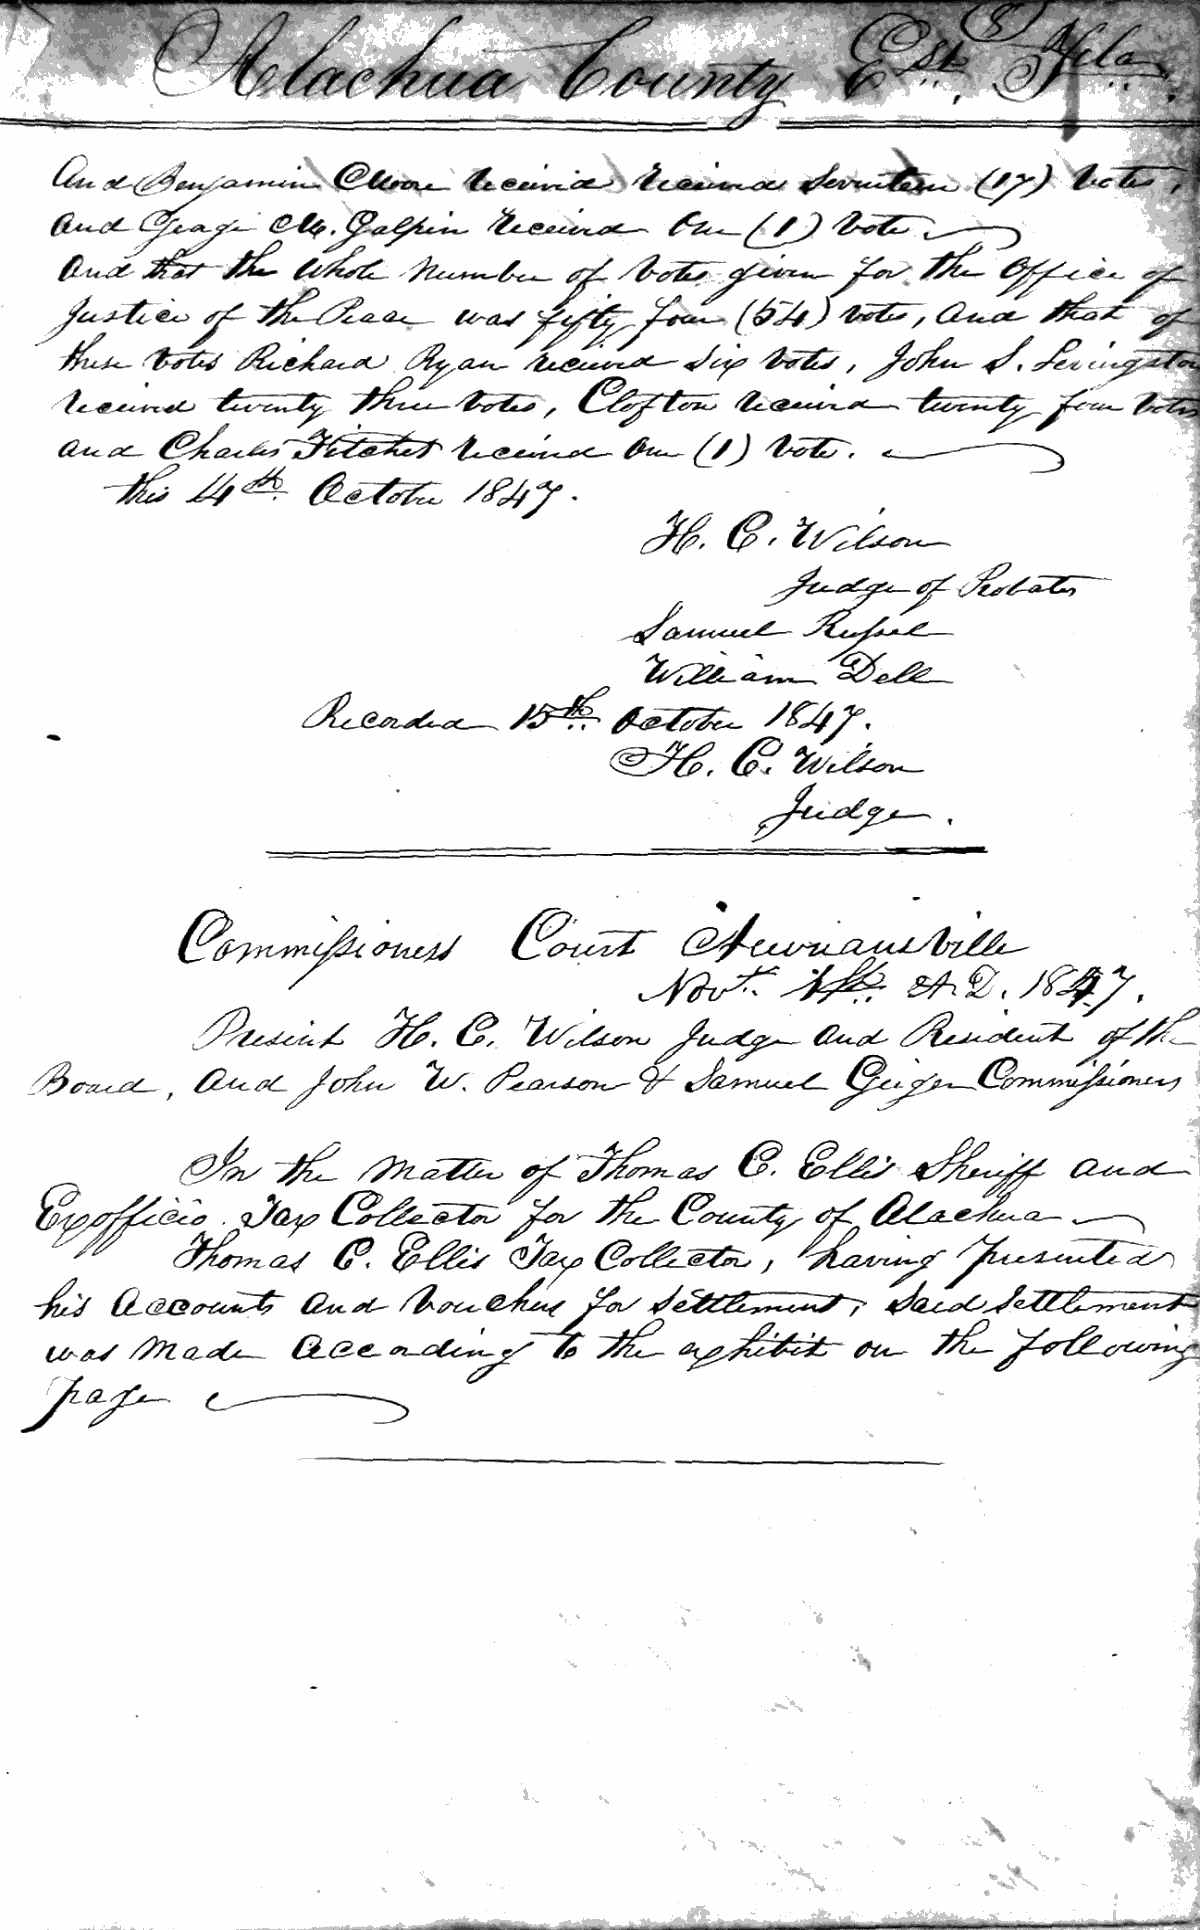 (8)
Alachua County Est. Fla.
And Benjamin Moore received received Seventeen (17) votes,
and George M. Galpin received One (1) vote.
and that the whole number of votes given for the Office of
Justice of the Peace was fifty four (54) votes, and that of
these votes Richard Ryan received Six votes, John S. Livingston
received twenty three votes, Clofton received twenty four votes
and Charles Fitchet received One (1) vote.
this 4th October 1847.
H. C. Wilson
Judge of Probates
Samuel Russel
William Dell
Recorded 15th October 1847.
H. C. Wilson
Judge.
Commissioners Court Newnansville
Novr. 1st. A.D. 1847.
Present H. C. Wilson Judge and President of the
Board, and John W. Pearson & Samuel Geiger Commissioners
In the matter of Thomas C. Ellis Sheriff and
Exofficio Tax Collector for the County of Alachua
Thomas C. Ellis Tax Collector, having presented
his accounts and vouchers for settlement, Said Settlement
was made according to the exhibit on the following
page